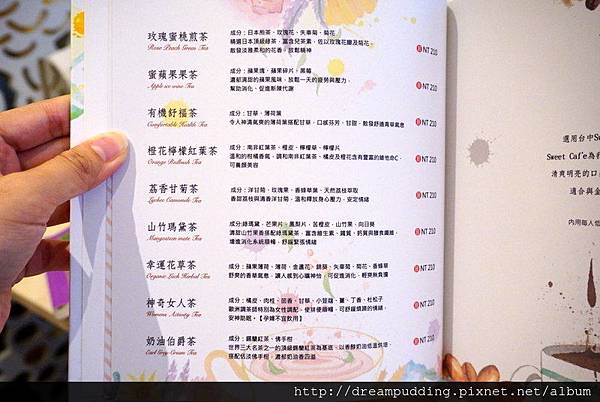 玫瑰蜜桃煎茶
Rose Peach Green Tea
成分：日本煎茶、玫瑰花、矢車菊、菊花
精選日本頂級綠茶，富含兒茶素，佐以玫瑰花瓣及菊花，
散發淡雅柔和的花香，放鬆精神
NT 210
蜜蘋果果茶
Apple ice wine Tea
成分：蘋果塊、蘋果碎片、黑莓
濃郁清甜的蘋果風味，放鬆一天的疲勞與壓力，
幫助消化，促進新陳代謝
NT 210
有機舒福茶
Comfortable Health Tea
成分：甘草、薄荷葉
令人神清氣爽的薄荷葉搭配甘草，口感芬芳、甘甜，散發舒適青草氣息
NT 210
橙花檸檬紅葉茶
Orange Redbush Tea
成分：南非紅葉茶、橙皮、檸檬草、檸檬片
溫和的柑橘香氣，調和南非紅葉茶，橘皮及橙花含有豐富的維他命C，
可養顏美容
NT 210
荔香甘菊茶
Lychee Camomile Tea
成分：洋甘菊、玫瑰果、香蜂草葉、天然荔枝萃取
香甜荔枝與清香洋甘菊，溫和釋放身心壓力，安定情緒
NT 210
山竹瑪黛茶
Mangosteen mate Tea
成分:綠瑪黛、芒果片、鳳梨片、苦橙皮、山竹果、向日葵
清甜山竹果香搭配綠瑪黛茶，富含維生素、鐵質、鈣質與膳食纖維，
增進消化系統順暢，舒緩緊張情緒
NT 210
幸運花草茶
Organic Luck Herbal Tea
成分：蘋果薄荷、薄荷、金盞花、錦葵、矢車菊、菊花、香蜂草
舒爽的香草氣息，讓人感到心曠神怡，可促進消化，輕爽無負擔
NT 210
神奇女人茶
Womens Activity Tea
成分：橘皮、肉桂、茴香、甘草、小荳蔻、薑、丁香、杜松子
歐洲調茶師特別為女性調配，使排便順暢，可舒緩煩躁的情緒，
安神助眠。【孕婦不宜飲用】
NT 210
奶油伯爵茶
Earl Grey Cream Tea
成分：錫蘭紅茶、佛手柑
世界三大名茶之一的頂級錫蘭紅茶為基底，以香醇奶油低溫烘培，
搭配佐淡佛手柑，濃郁奶油香四溢
NT 210
選用台中
Sweet Cafe為
清爽明亮的口
適合與金
內用每人低
http://dreampudding.pixnet.net/album